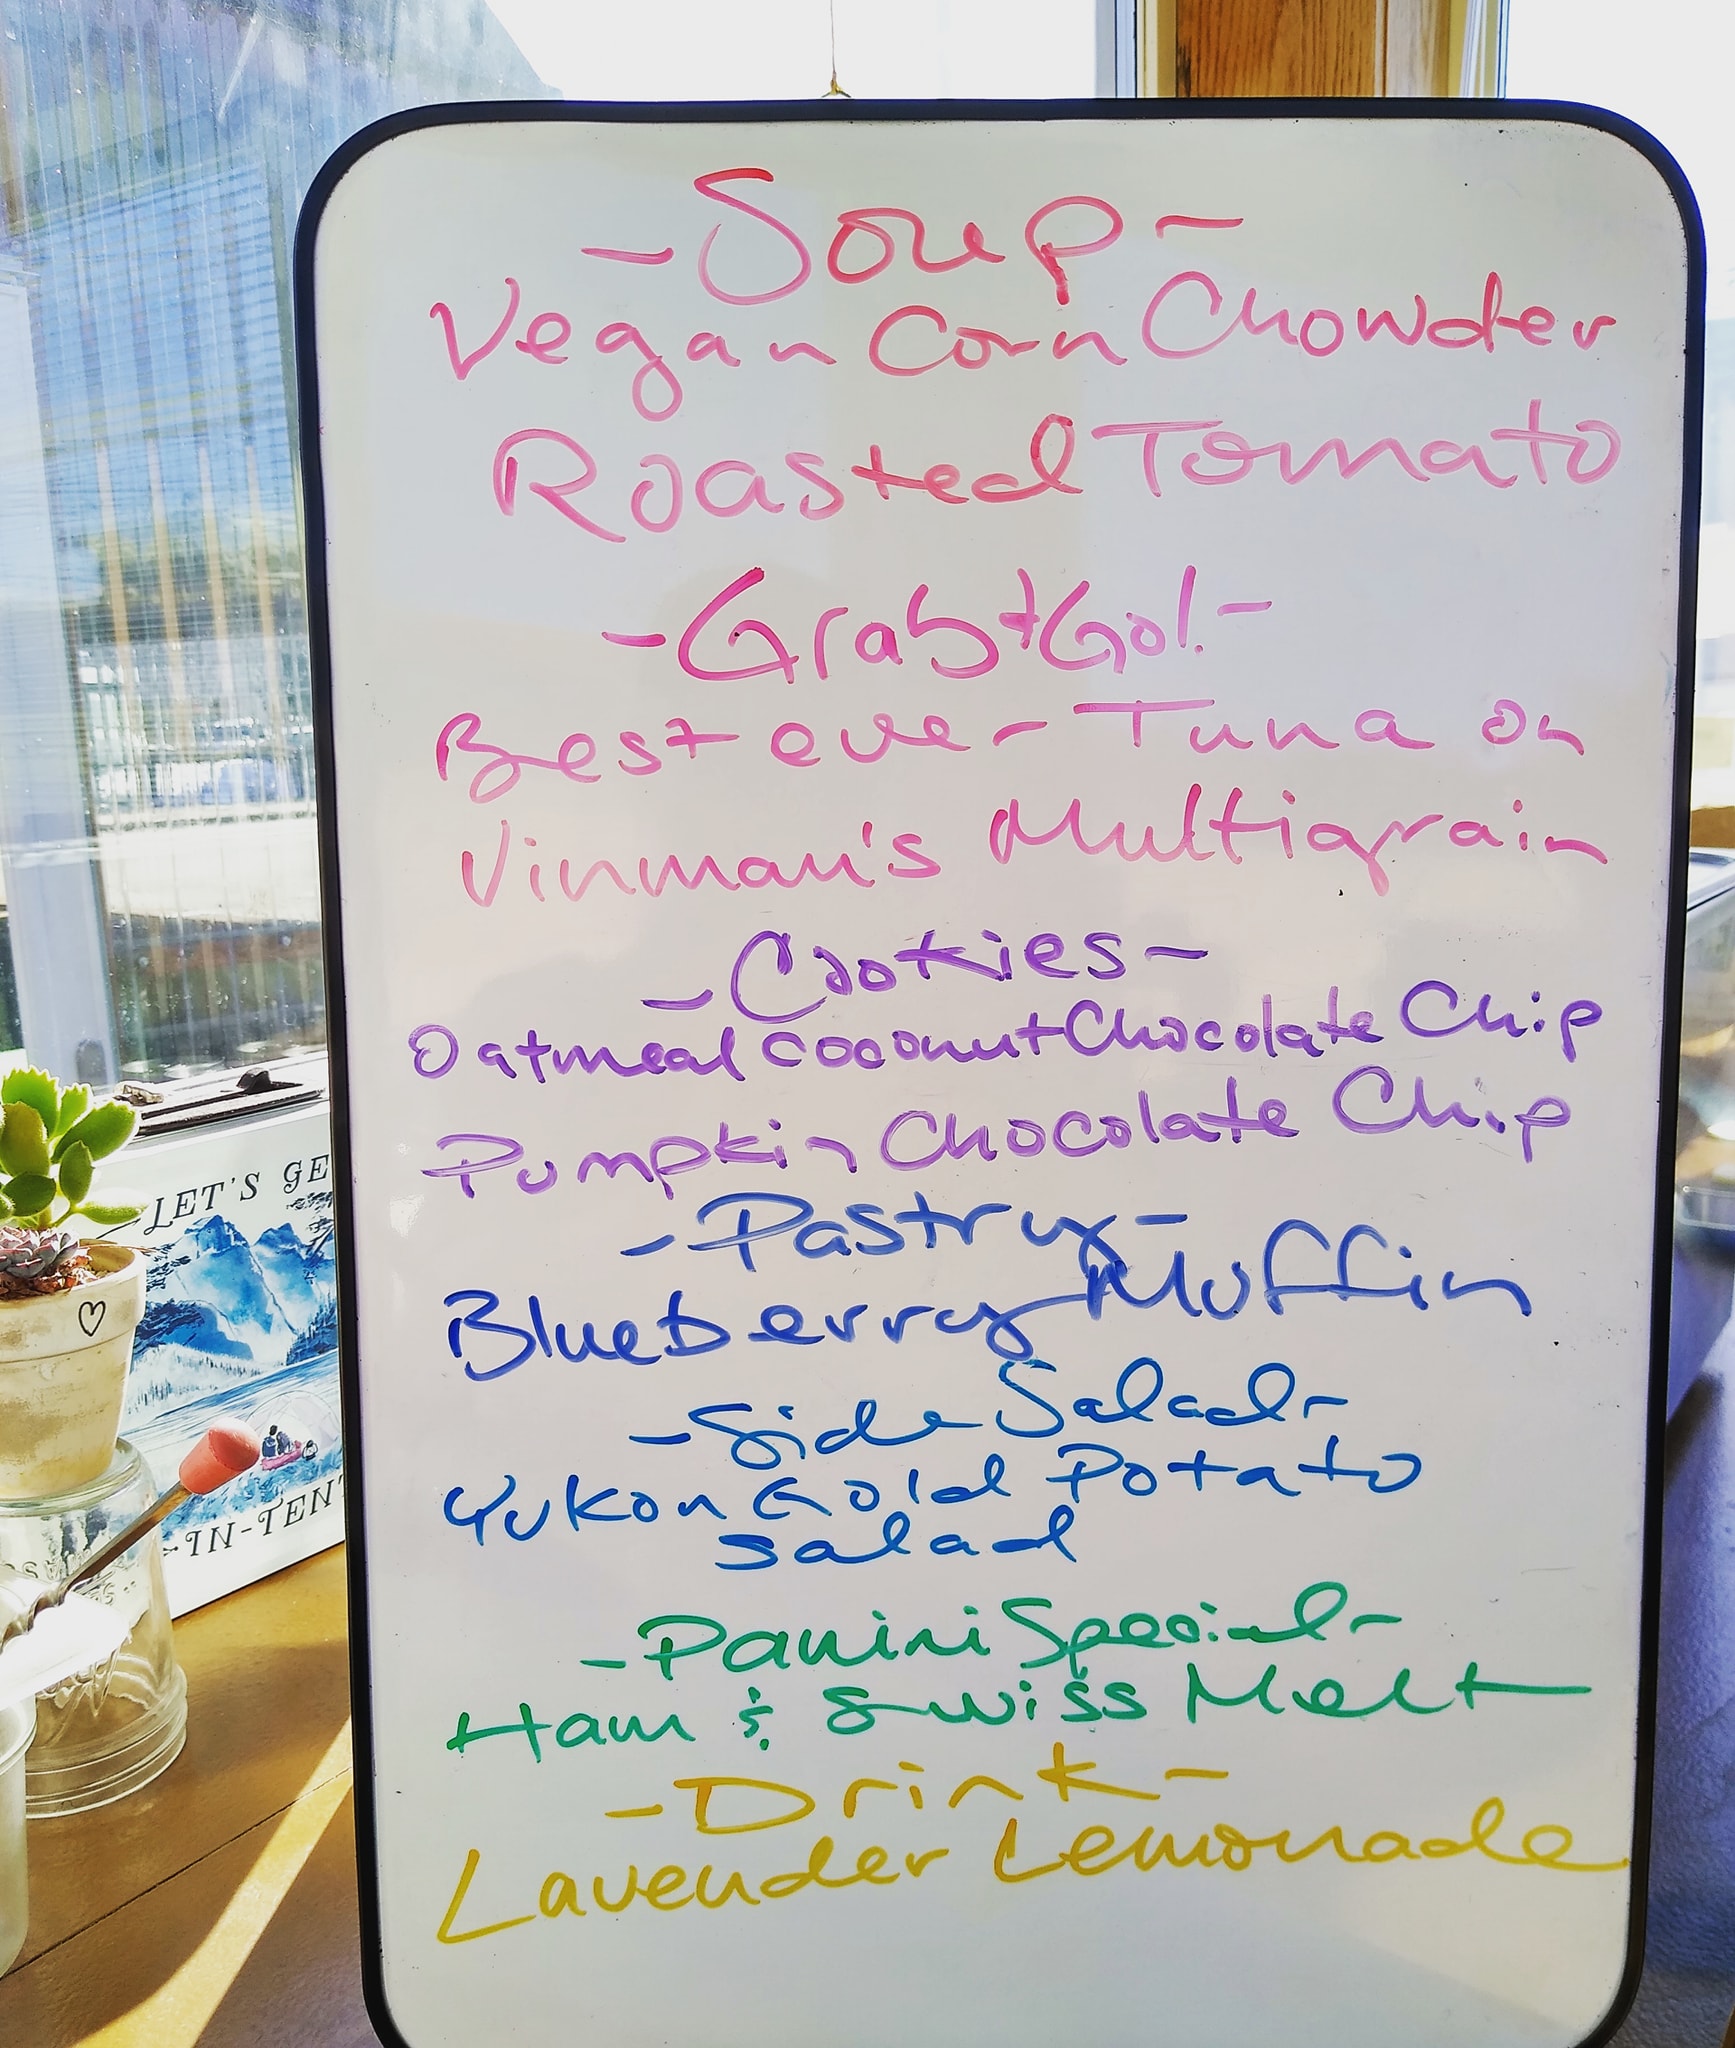 -Soup-
Vegan Corn Chowder
Roasted Tomato
-Grab+Go!-
Best ever Tuna on
Vinman's Multigrain
-Cookies-
Oatmeal coconut Chocolate Chip
Pumpkin Chocolate Chip
-Pastry-
Blueberry Muffin
-Side Salad-
Yukon Gold Potato
salad
-Panini Special-
Ham & Swiss Melt
-Drink-
Lavender Lemonade
LET'S GE
IN-TENT